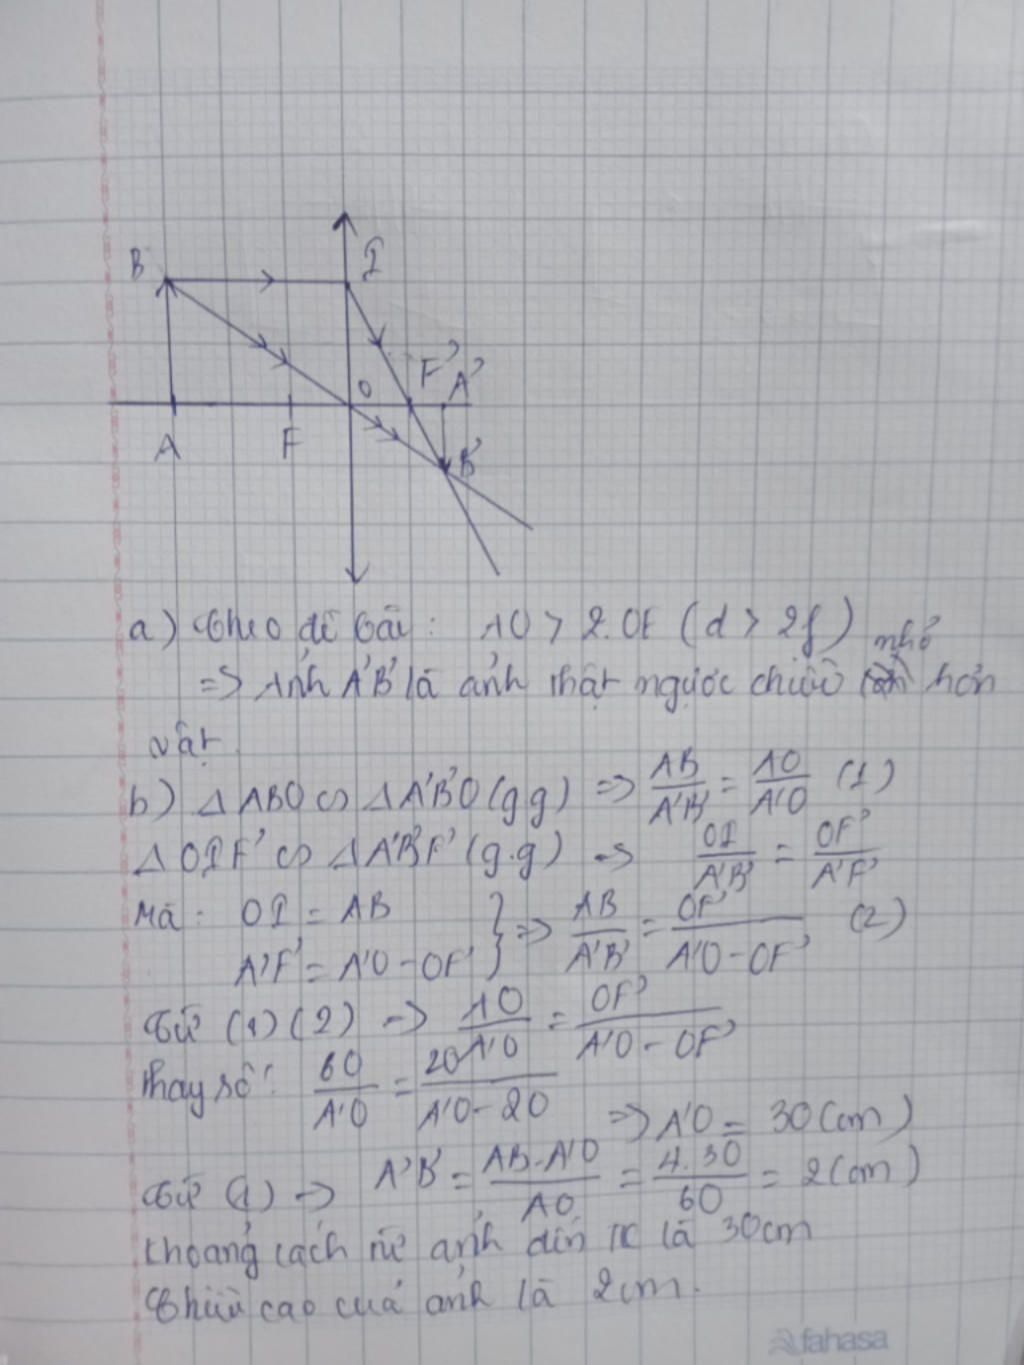 B I
F' A'
O
A F B'
a) Theo đề bài: AO > 2.OF (d > 2f)
nhỏ
=> Ảnh A'B' là ảnh thật ngược chiều hơn
vật.
b) Δ ABO ∽ Δ A'B'O (g g) => AB/A'B' = AO/A'O (1)
Δ OIF' ∽ Δ A'B'F' (g.g) => OI/A'B' = OF'/A'F'
Mà: OI = AB
A'F' = A'O - OF' } => AB/A'B' = OF'/A'O - OF' (2)
Từ (1) (2) -> AO/A'O = OF'/A'O - OF'
Thay số: 60/A'O = 20/A'O - 20
=> A'O = 30 (cm)
Từ (1) -> A'B' = AB.A'O/AO = 4.30/60 = 2 (cm)
Khoảng cách từ ảnh đến TK là 30cm
Chiều cao của ảnh là 2cm.
fahasa